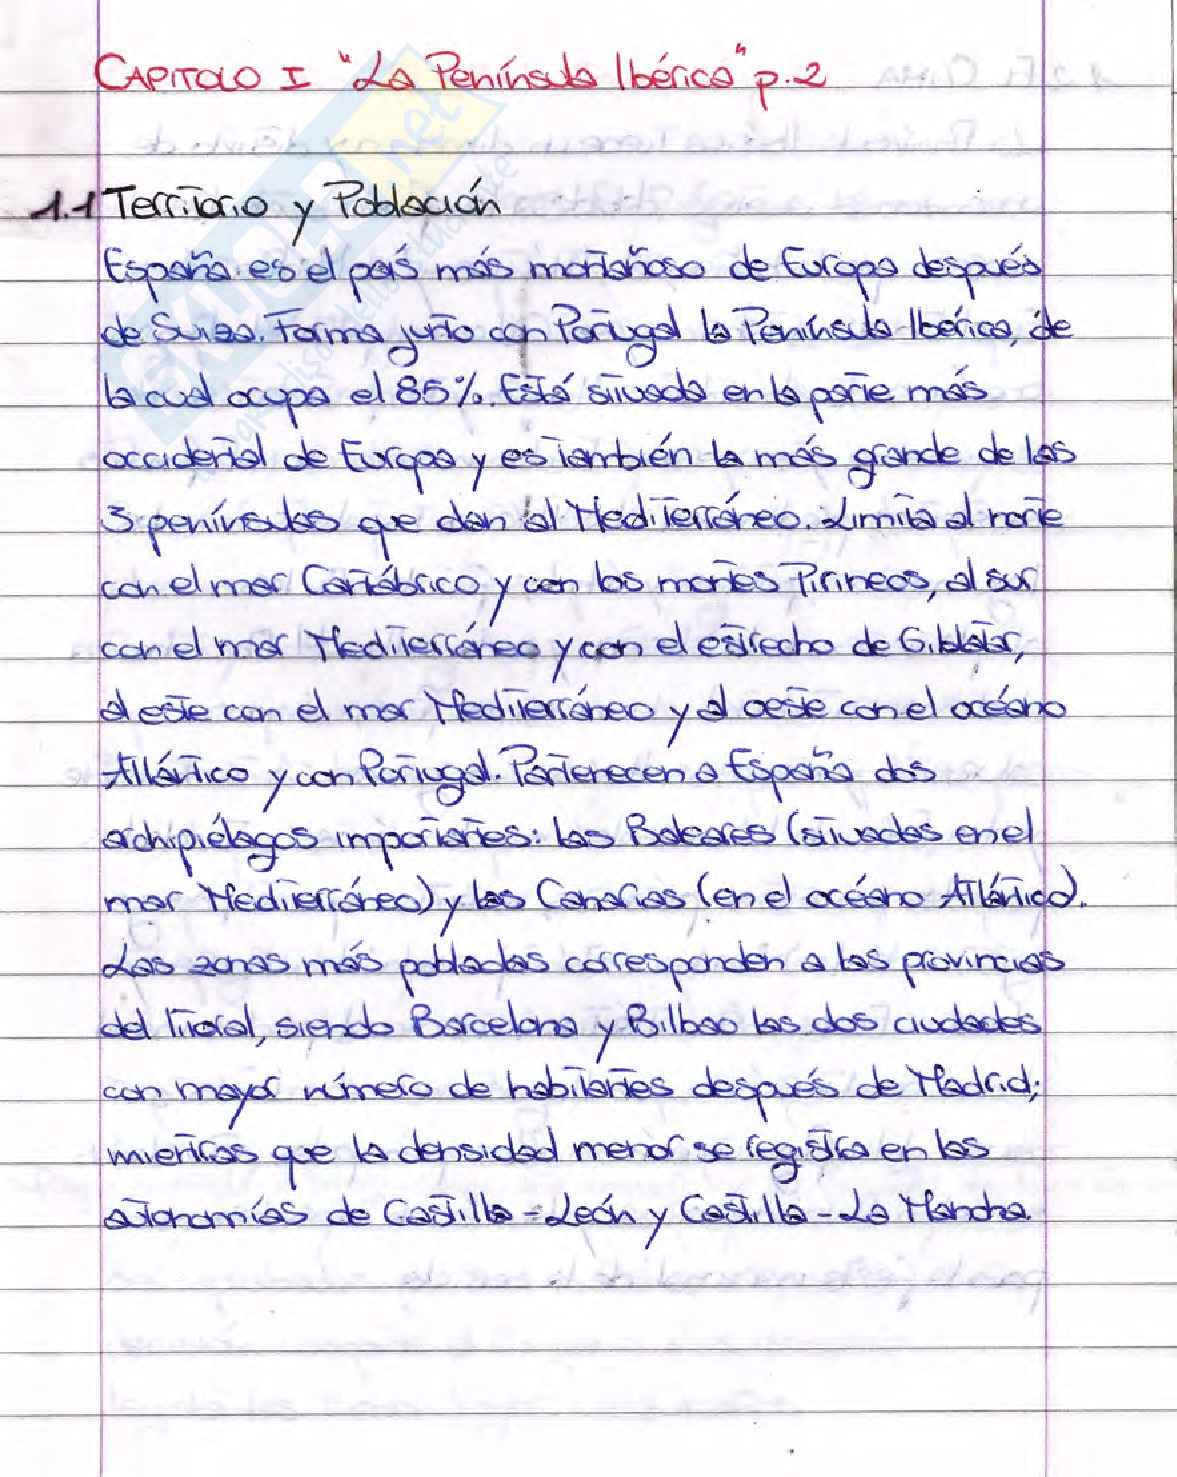 CAPITOLO I "La Península Ibérica" p.2
1.1 Territorio y Población
España es el país más montañoso de Europa después
de Suiza. Forma junto con Portugal la Península Ibérica, de
la cual ocupa el 85%. Está situada en la parte más
occidental de Europa y es también la más grande de las
3 penínsulas que dan al Mediterráneo. Limita al norte
con el mar Cantábrico y con los montes Pirineos, al sur
con el mar Mediterráneo y con el estrecho de Gibltar,
al este con el mar Mediterráneo y al oeste con el océano
Atlántico y con Portugal. Partenecen a España dos
archipiélagos importantes: las Baleares (situadas en el
mar Mediterráneo) y las Canarias (en el océano Atlántico).
Las zonas más pobladas corresponden a las provincias
del litoral, siendo Barcelona y Bilbao las dos ciudades
con mayor número de habitantes después de Madrid;
mientras que la densidad menor se registra en las
autonomías de Castilla-León y Castilla-La Mancha.